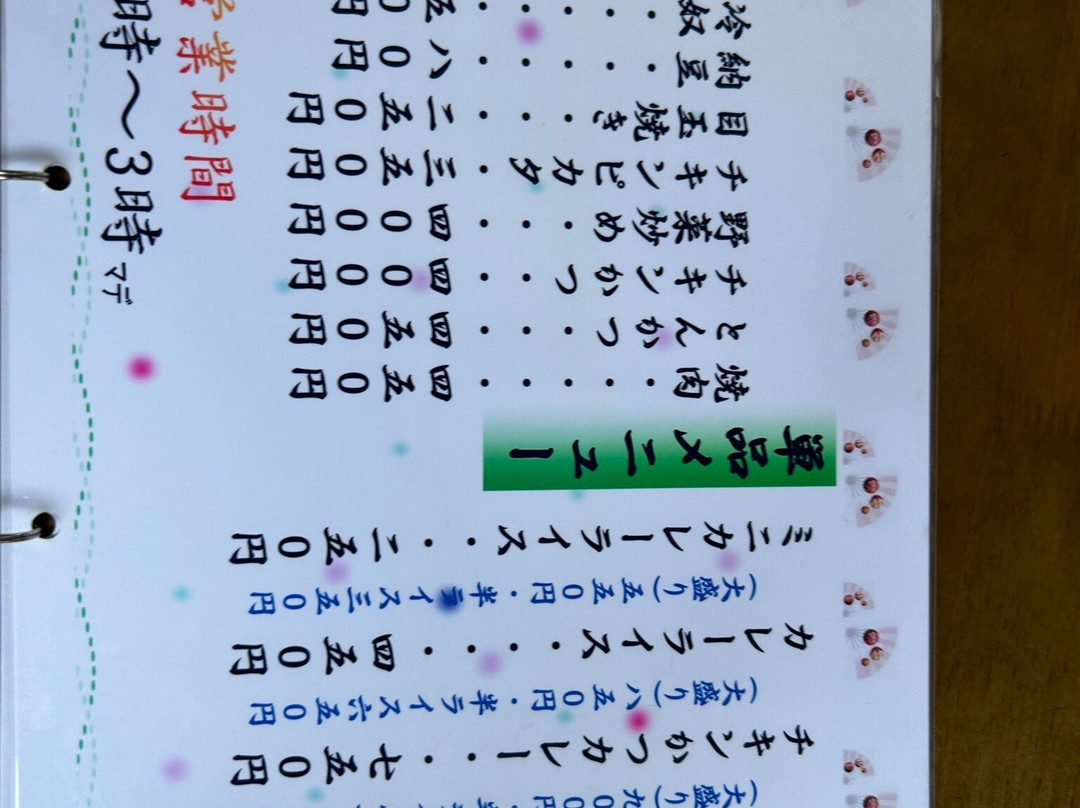 チキンかつカレー・・七五0円
(大盛り)八五0円・半ライス六五0円
カレーライス・・・・四五0円
(大盛り)五五0円・半ライス三五0円
ミニカレーライス・・二五0円
單品メニュー
焼肉・・・・・四五0円
とんかつ・・・四五0円
チキンかつ・・四00円
野菜炒め・・・四00円
チキンピカタ・三五0円
目玉焼き・・・二五0円
納豆・・・・・八0円
冷奴・・・・・五0円
営業時間
時〜3時マデ